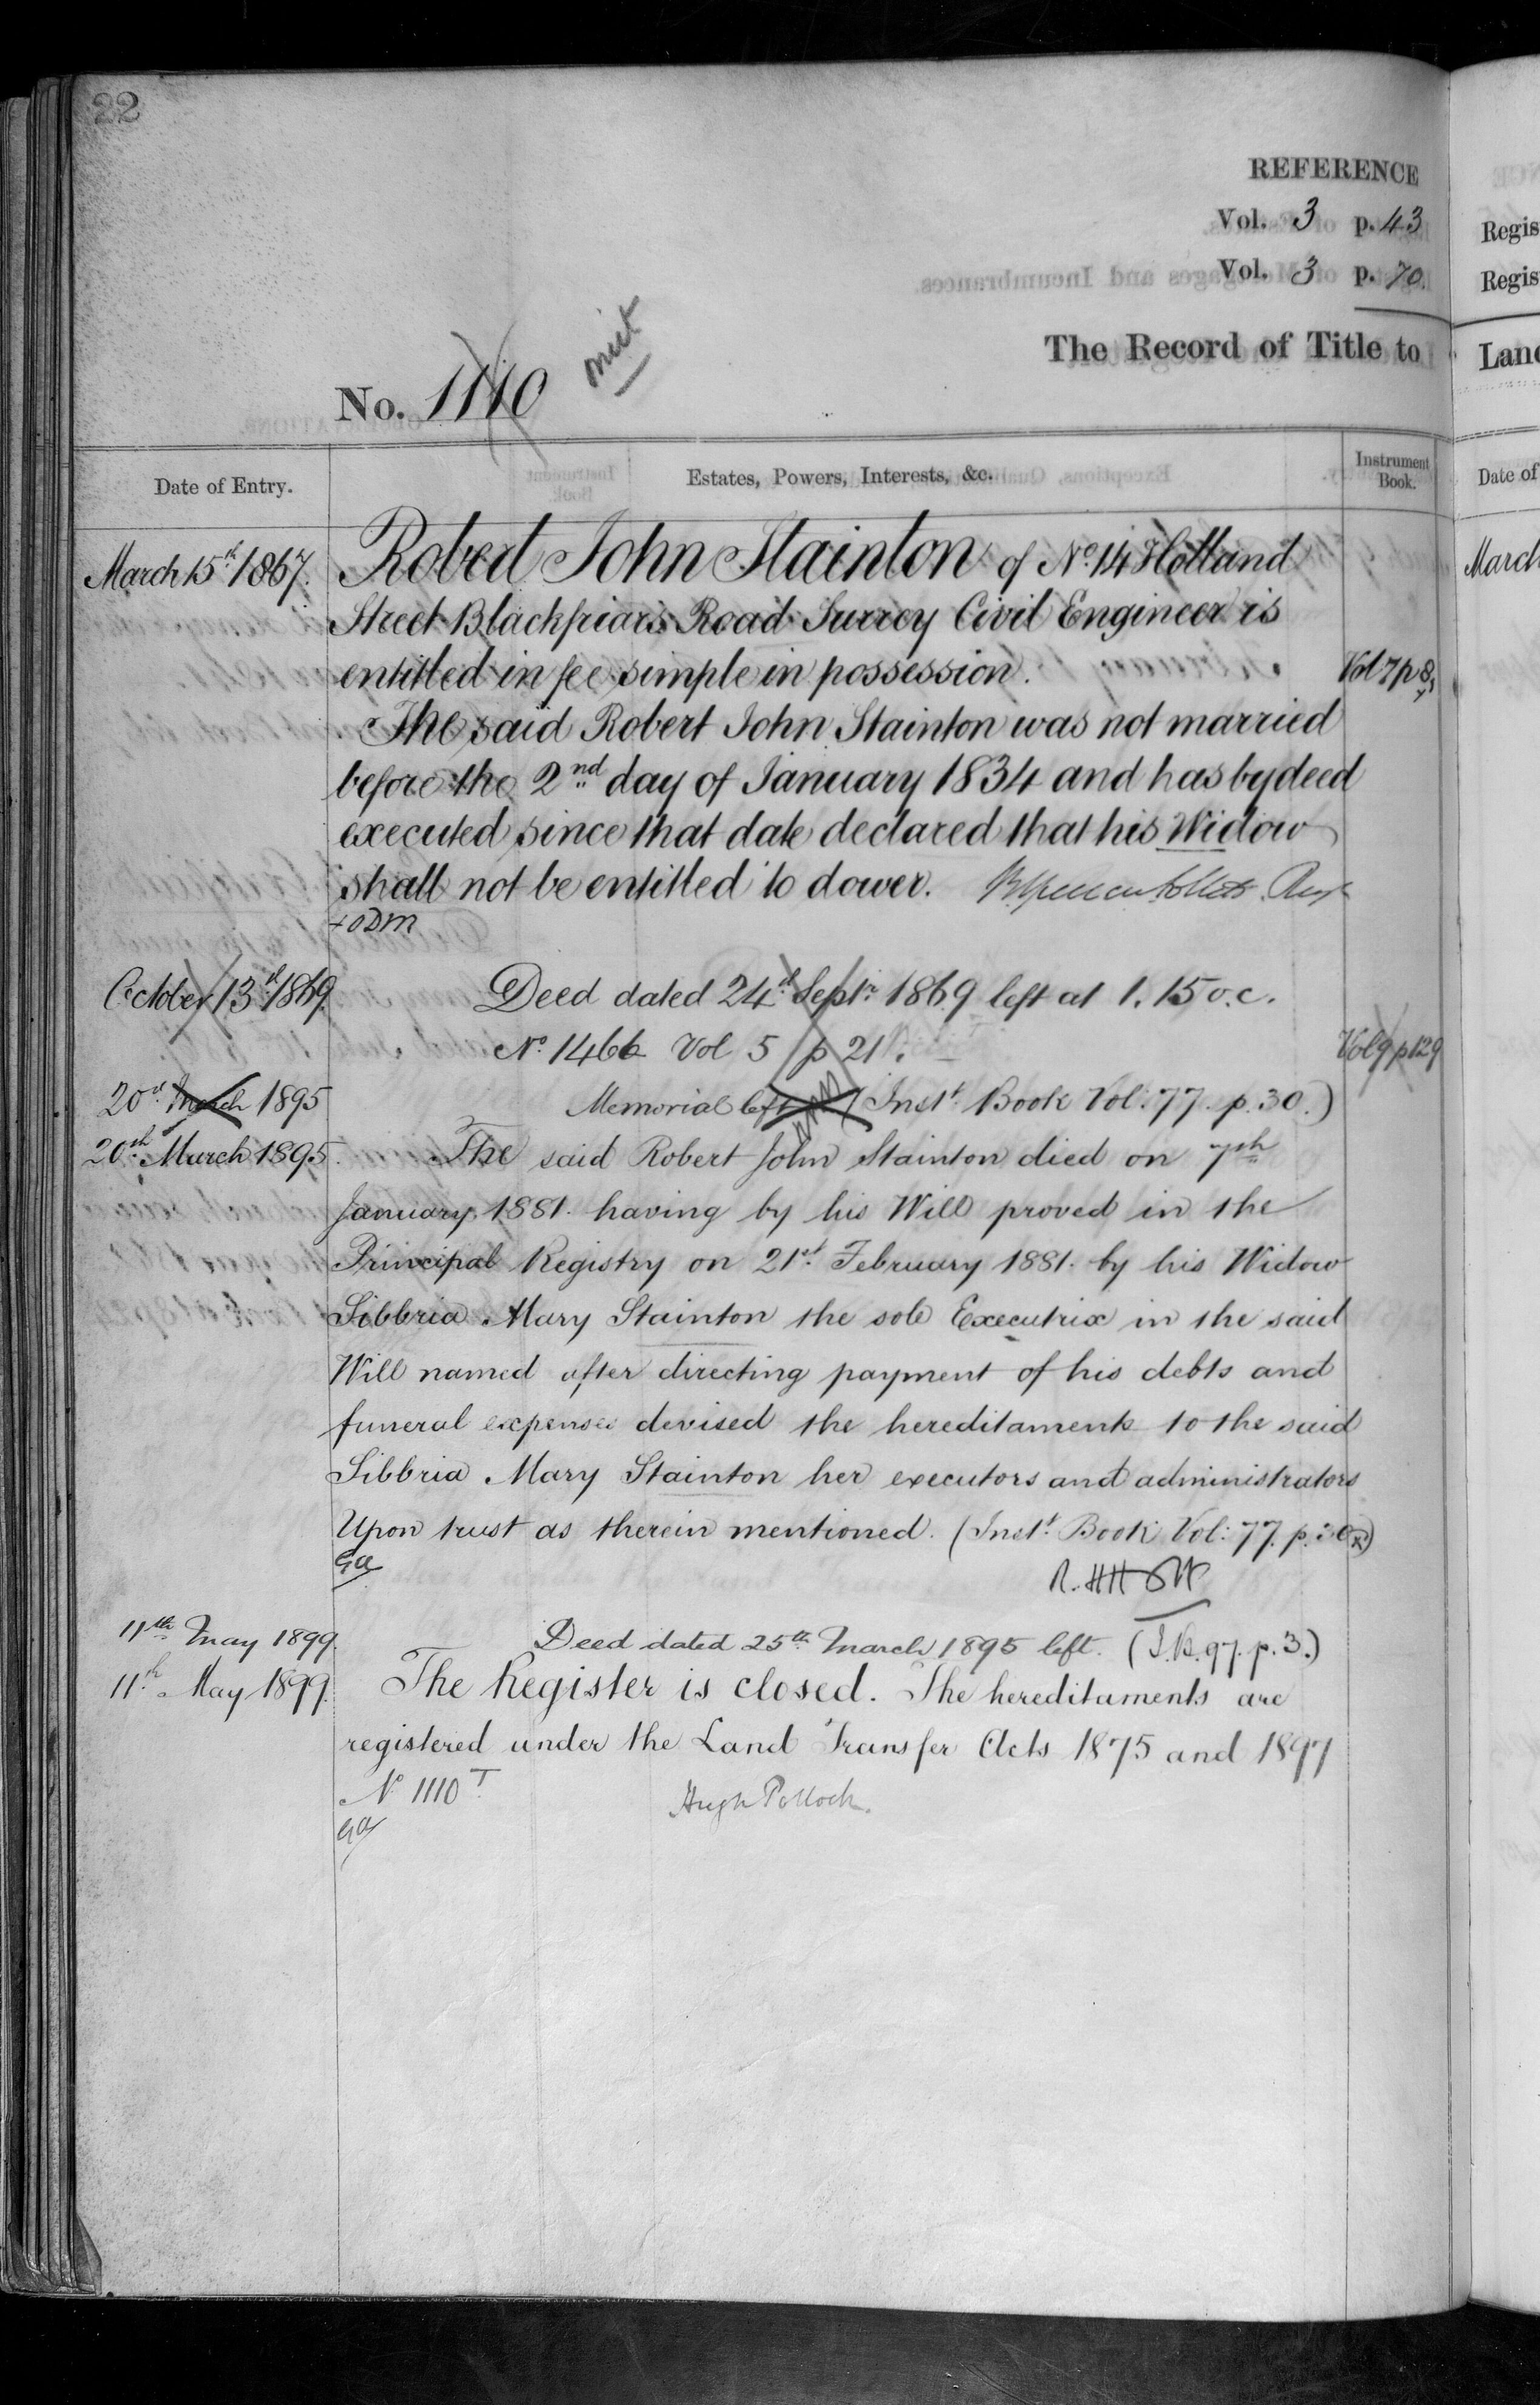 22
REFERENCE
Vol. 3 p. 43
Vol. 3 p. 70.
The Record of Title to
No. 1110
Date of Entry.
Estates, Powers, Interests, &c.
Instrument Book.
March 15th 1867. Robert John Stainton of No. 14 Holland
Street Blackfriars Road Surrey Civil Engineer is
entitled in fee simple in possession. Vol 7 p 8
The said Robert John Stainton was not married
before the 2nd day of January 1834 and has by deed
executed since that date declared that his Widow
shall not be entitled to dower.
October 13th 1869. Deed dated 24th Septr. 1869 left at 1.15 o.c.
No. 1466 Vol 5 p 21. Vol 9 p 129
20th March 1895 Memorial left (Instt. Book Vol: 77. p. 30.)
20th March 1895. The said Robert John Stainton died on 7th
January, 1881. having by his Will proved in the
Principal Registry on 21st. February 1881. by his Widow
Sibbria Mary Stainton the sole Executrix in the said
Will named after directing payment of his debts and
funeral expenses devised the hereditaments to the said
Sibbria Mary Stainton her executors and administrators
Upon trust as therein mentioned. (Instt. Book Vol: 77. p. 30)
11th May 1899. Deed dated 25th March 1895 left. (I.B. 97. p. 3.)
11th May 1899. The Register is closed. The hereditaments are
registered under the Land Transfer Acts 1875 and 1897
No. 1110 T
Hugh Pollock.
Regis
Regis
Land
Date of
March